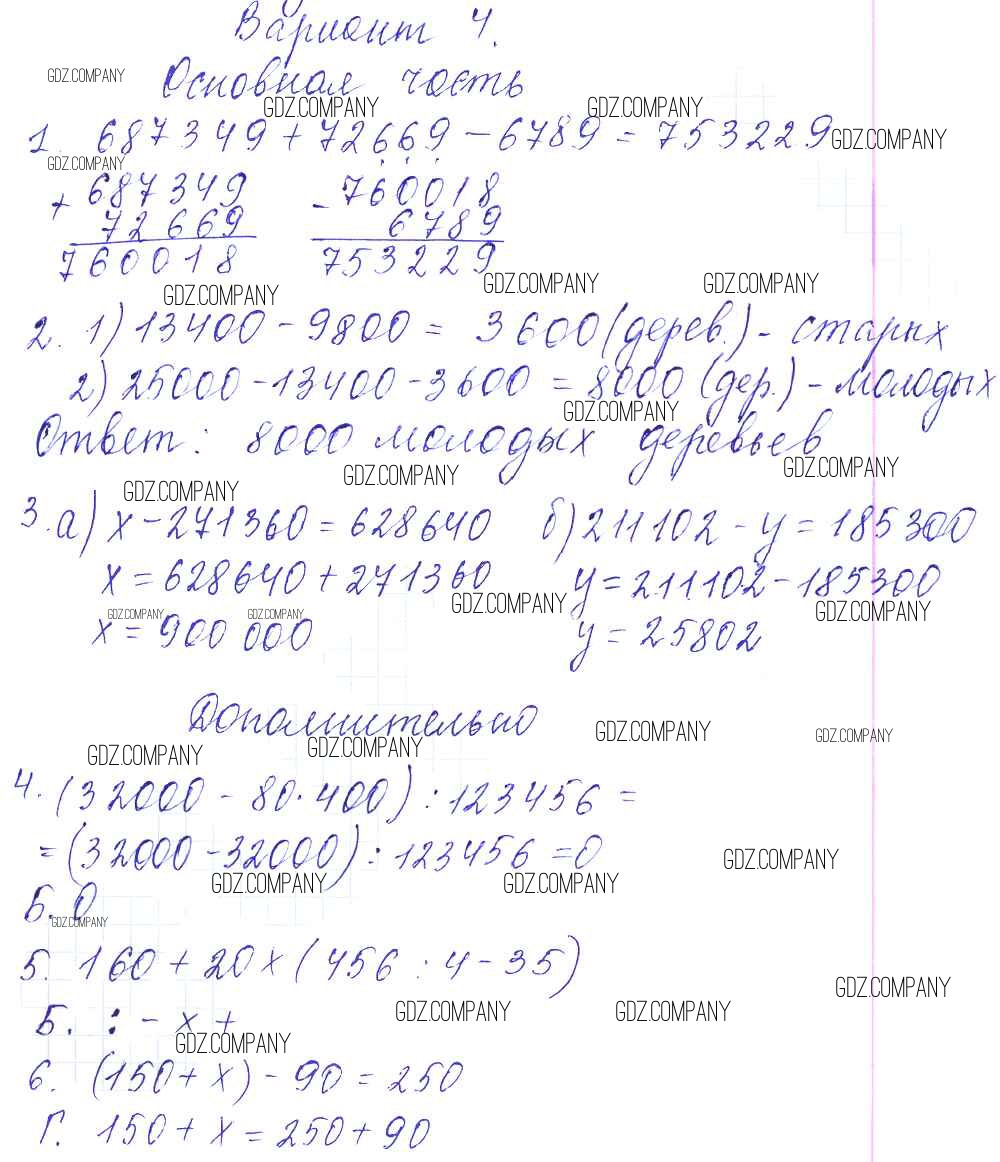 Вариант 4.
GDZ.COMPANY
Основная часть
GDZ.COMPANY GDZ.COMPANY
1. 687349 + 72669 - 6789 = 753229 GDZ.COMPANY
GDZ.COMPANY
+ 687349 - 760018
72669 6789
760018 753229
GDZ.COMPANY GDZ.COMPANY GDZ.COMPANY
2. 1) 13400 - 9800 = 3600 (дерев.) - старых
2) 25000 - 13400 - 3600 = 8000 (дер.) - молодых
GDZ.COMPANY
Ответ: 8000 молодых деревьев
GDZ.COMPANY GDZ.COMPANY GDZ.COMPANY
3. а) x - 271360 = 628640 б) 211102 - y = 185300
x = 628640 + 271360 y = 211102 - 185300
GDZ.COMPANY GDZ.COMPANY GDZ.COMPANY GDZ.COMPANY
x = 900 000 y = 25802
Дополнительно
GDZ.COMPANY GDZ.COMPANY GDZ.COMPANY GDZ.COMPANY
4. (32000 - 80 · 400) : 123456 =
= (32000 - 32000) : 123456 = 0
GDZ.COMPANY GDZ.COMPANY GDZ.COMPANY
Б. 0
GDZ.COMPANY
5. 160 + 20 x (456 : 4 - 35)
GDZ.COMPANY GDZ.COMPANY GDZ.COMPANY
Б. : - x +
GDZ.COMPANY
6. (150 + x) - 90 = 250
Г. 150 + x = 250 + 90